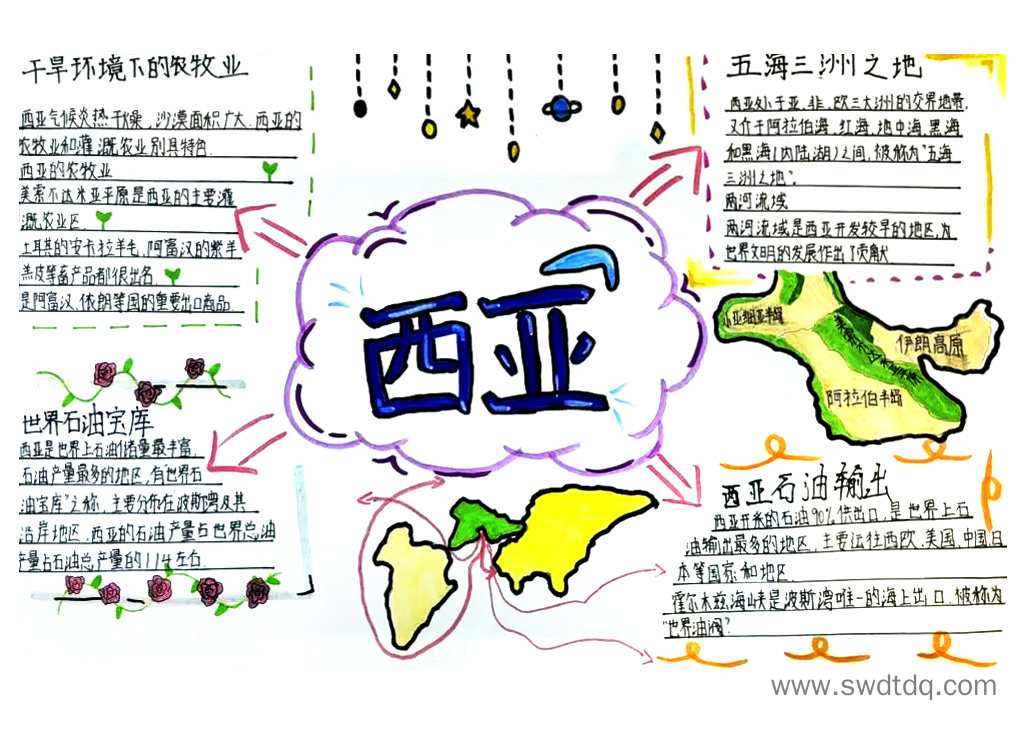 干旱环境下的农牧业
西亚气候炎热干燥,沙漠面积广大.西亚的
农牧业和灌溉农业别具特色.
西亚的农牧业
美索不达米亚平原是西亚的主要灌
溉农业区.
土耳其的安卡拉羊毛,阿富汉的紫羊
羔皮等畜产品都很出名.
是阿富汉.依朗等国的重要出口商品.
世界石油宝库
西亚是世界上石油储量最丰富.
石油产量最多的地区,有世界石
油宝库"之称.主要分布在波斯湾及其
沿岸地区,西亚的石油产量占世界总油
产量占石油总产量的1/4左右.
西亚
五海三洲之地
西亚处于亚、非、欧三大洲的交界地带,
又介于阿拉伯海,红海,地中海,黑海
和黑海(内陆湖)之间,被称为"五海
三洲之地".
两河流域
两河流域是西亚开发较早的地区,为
世界文明的发展作出了贡献
小亚细亚半岛
美索不达米亚平原
伊朗高原
阿拉伯半岛
西亚石油输出
西亚开采的石油90%供出口,是世界上石
油输出最多的地区,主要运往西欧、美国、中国、日
本等国家和地区.
霍尔木兹海峡是波斯湾唯一的海上出口,被称为
"世界油阀"
www.swdtdq.com